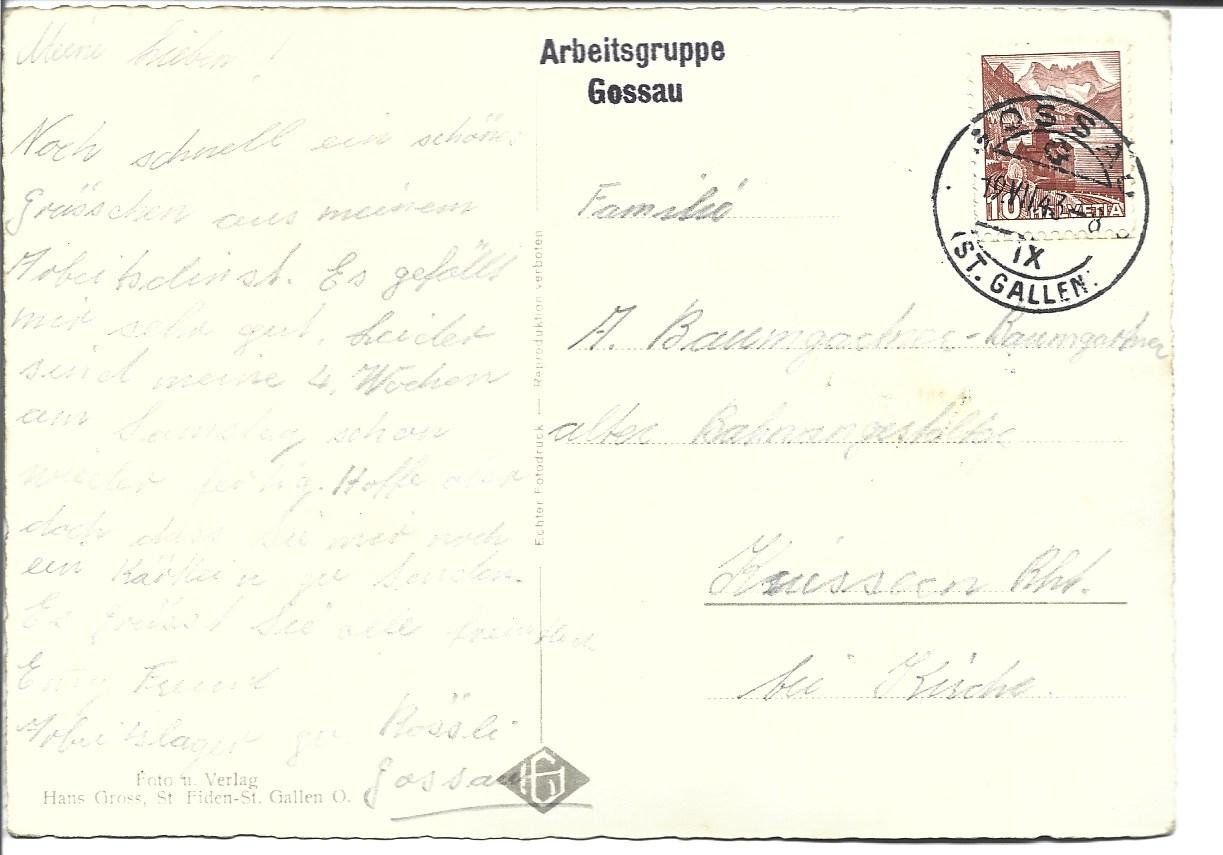 Meine Lieben!
Noch schnell ein schönes
Grüsschen aus meinem
Arbeitsdinst. Es gefällt
mir sehr gut leider
sind meine 4 Wochen
am Samstag schon
wieder fertig. Hoffe aber
doch dass sie mir noch
ein Kärtlein zu senden.
Es grüsst Sie alle freundlich
Arbeitslager zu Rössli
Gossau
Foto u. Verlag
Hans Gross, St Fiden-St. Gallen O.
Echter Fotodruck — Reproduktion verboten
Arbeitsgruppe
Gossau
GOSSAU
19.VIII.43-8
IX
(ST. GALLEN)
10 HELVETIA
Familie
A. Baumgartner-Baumgartner
alter Bahnangestellter
Rht.
bei Kirche.